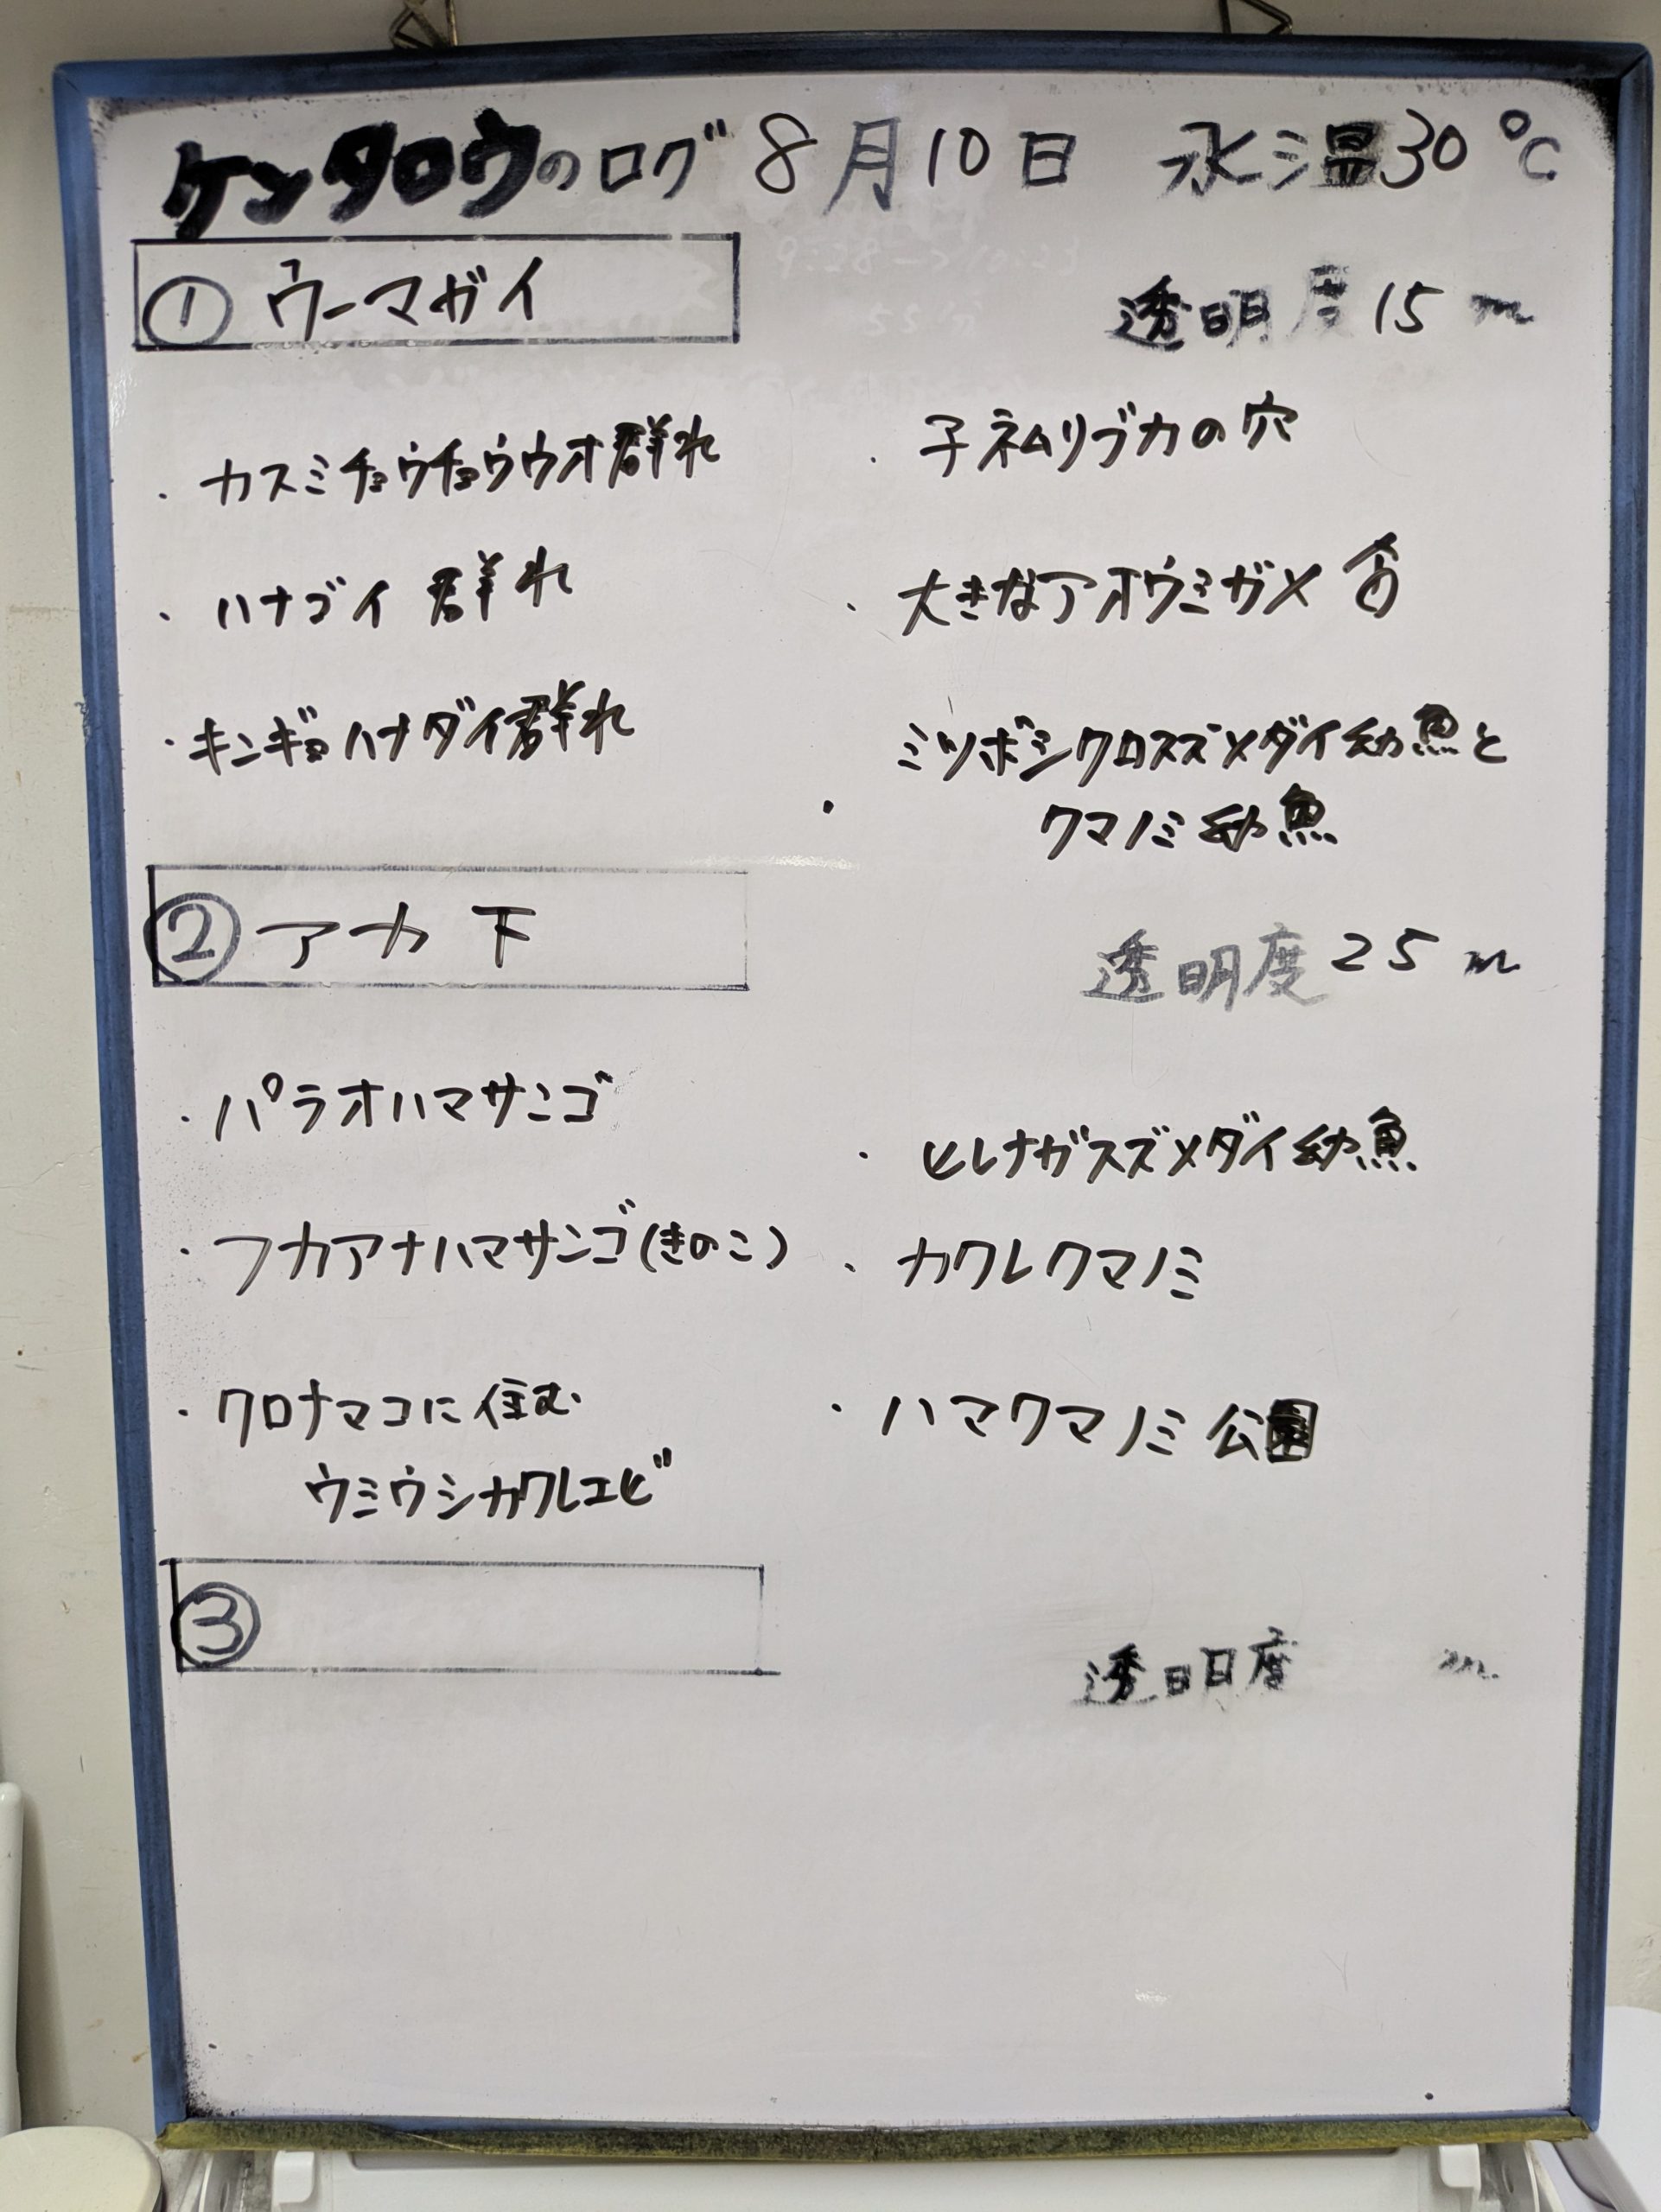 ケンタロウのログ 8月10日 水温30℃
① ウーマガイ
透明度15m
・カスミチョウチョウウオ群れ
・ハナゴイ 群れ
・キンギョハナダイ群れ
・子ネムリブカの穴
・大きなアオウミガメ
・ミツボシクロスズメダイ幼魚と
クマノミ幼魚
② アカ下
透明度25m
・パラオハマサンゴ
・フカアナハマサンゴ(きのこ)
・クロナマコに住む
ウミウシカクレエビ
・ヒレナガスズメダイ幼魚
・カクレクマノミ
・ハマクマノミ公園
③
透明度 m